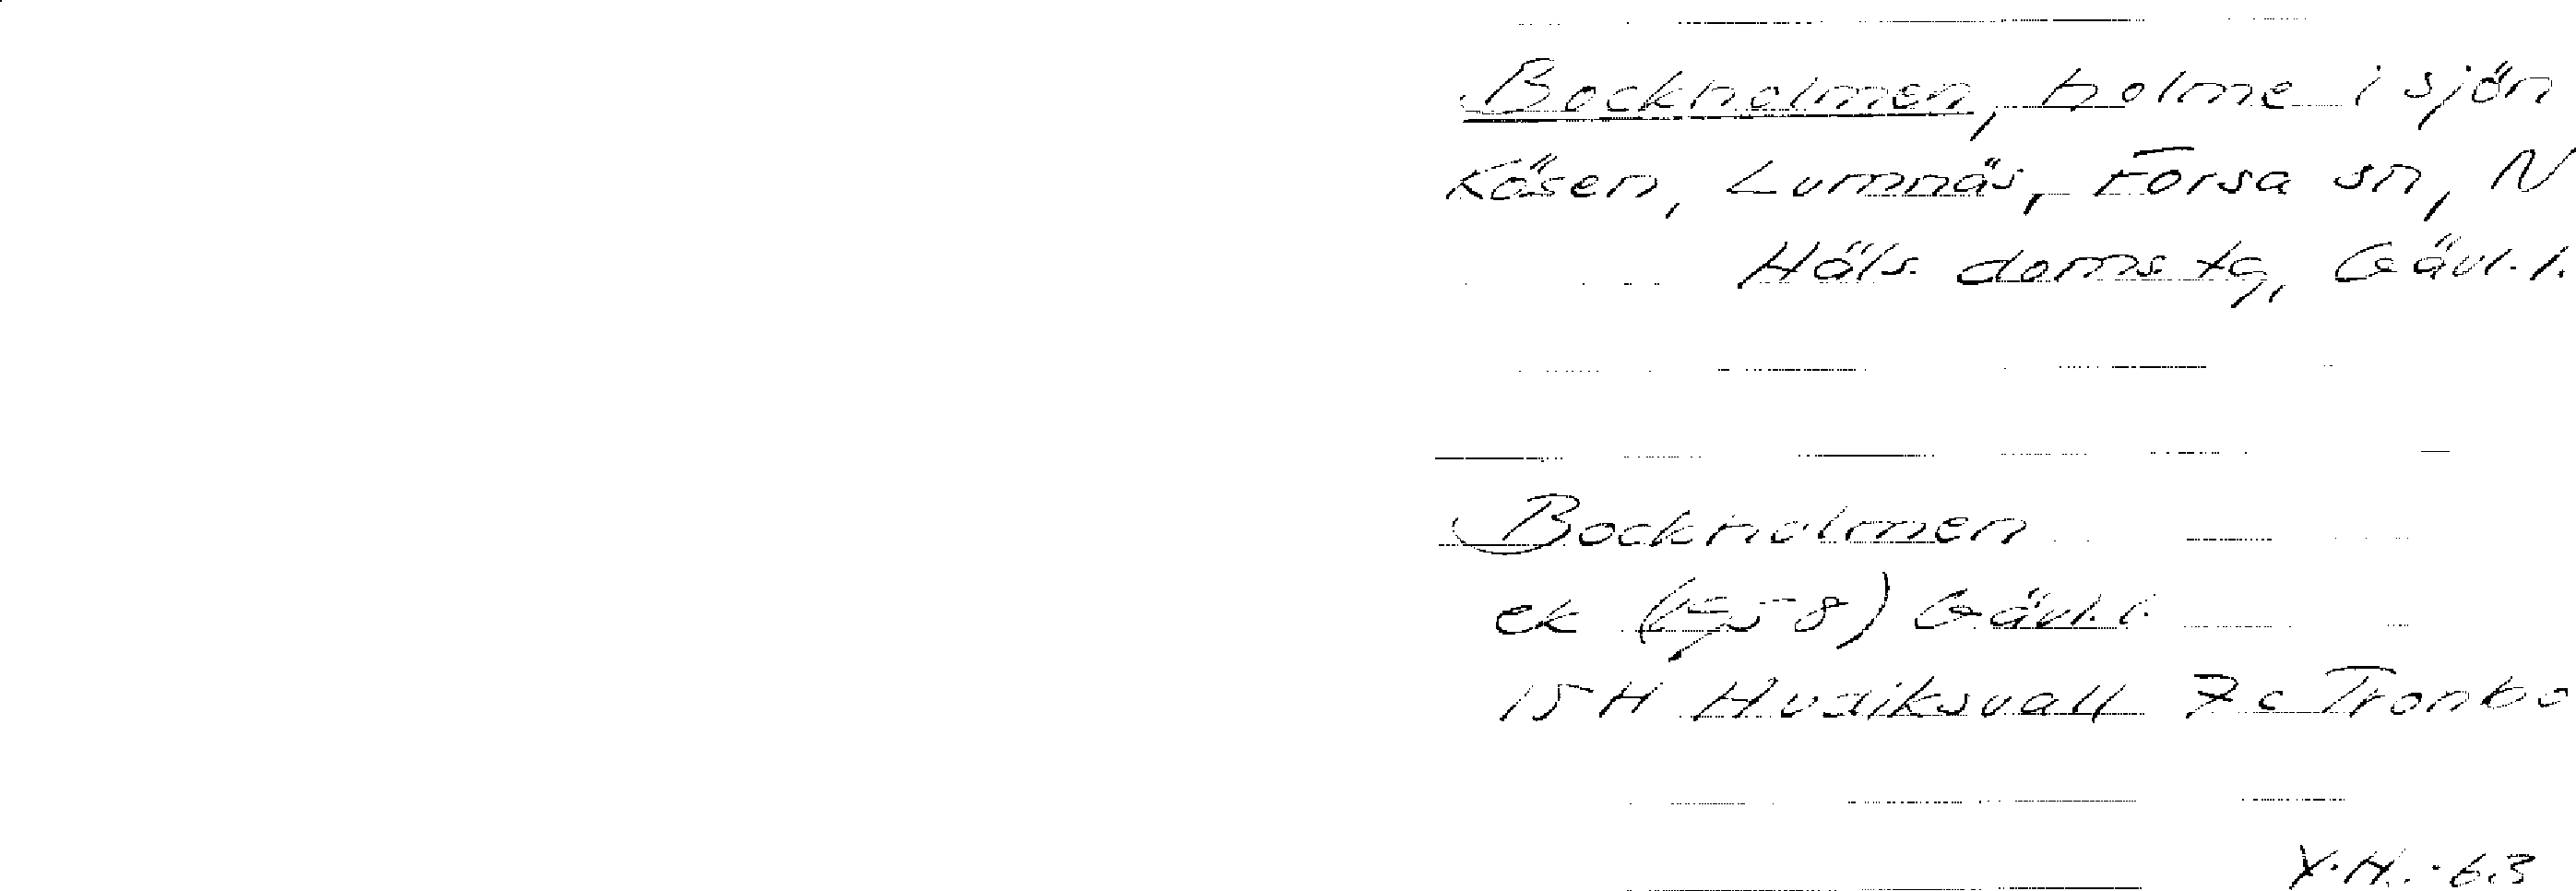 Bockholmen, holme i sjön
Kösen, Lumnäs, Forsa sn, N
Häls. domstg, Gävl. l.
Bockholmen
ek Gävl. l.
15 H Hudiksvall 7c Trönbo
Y.H. -63